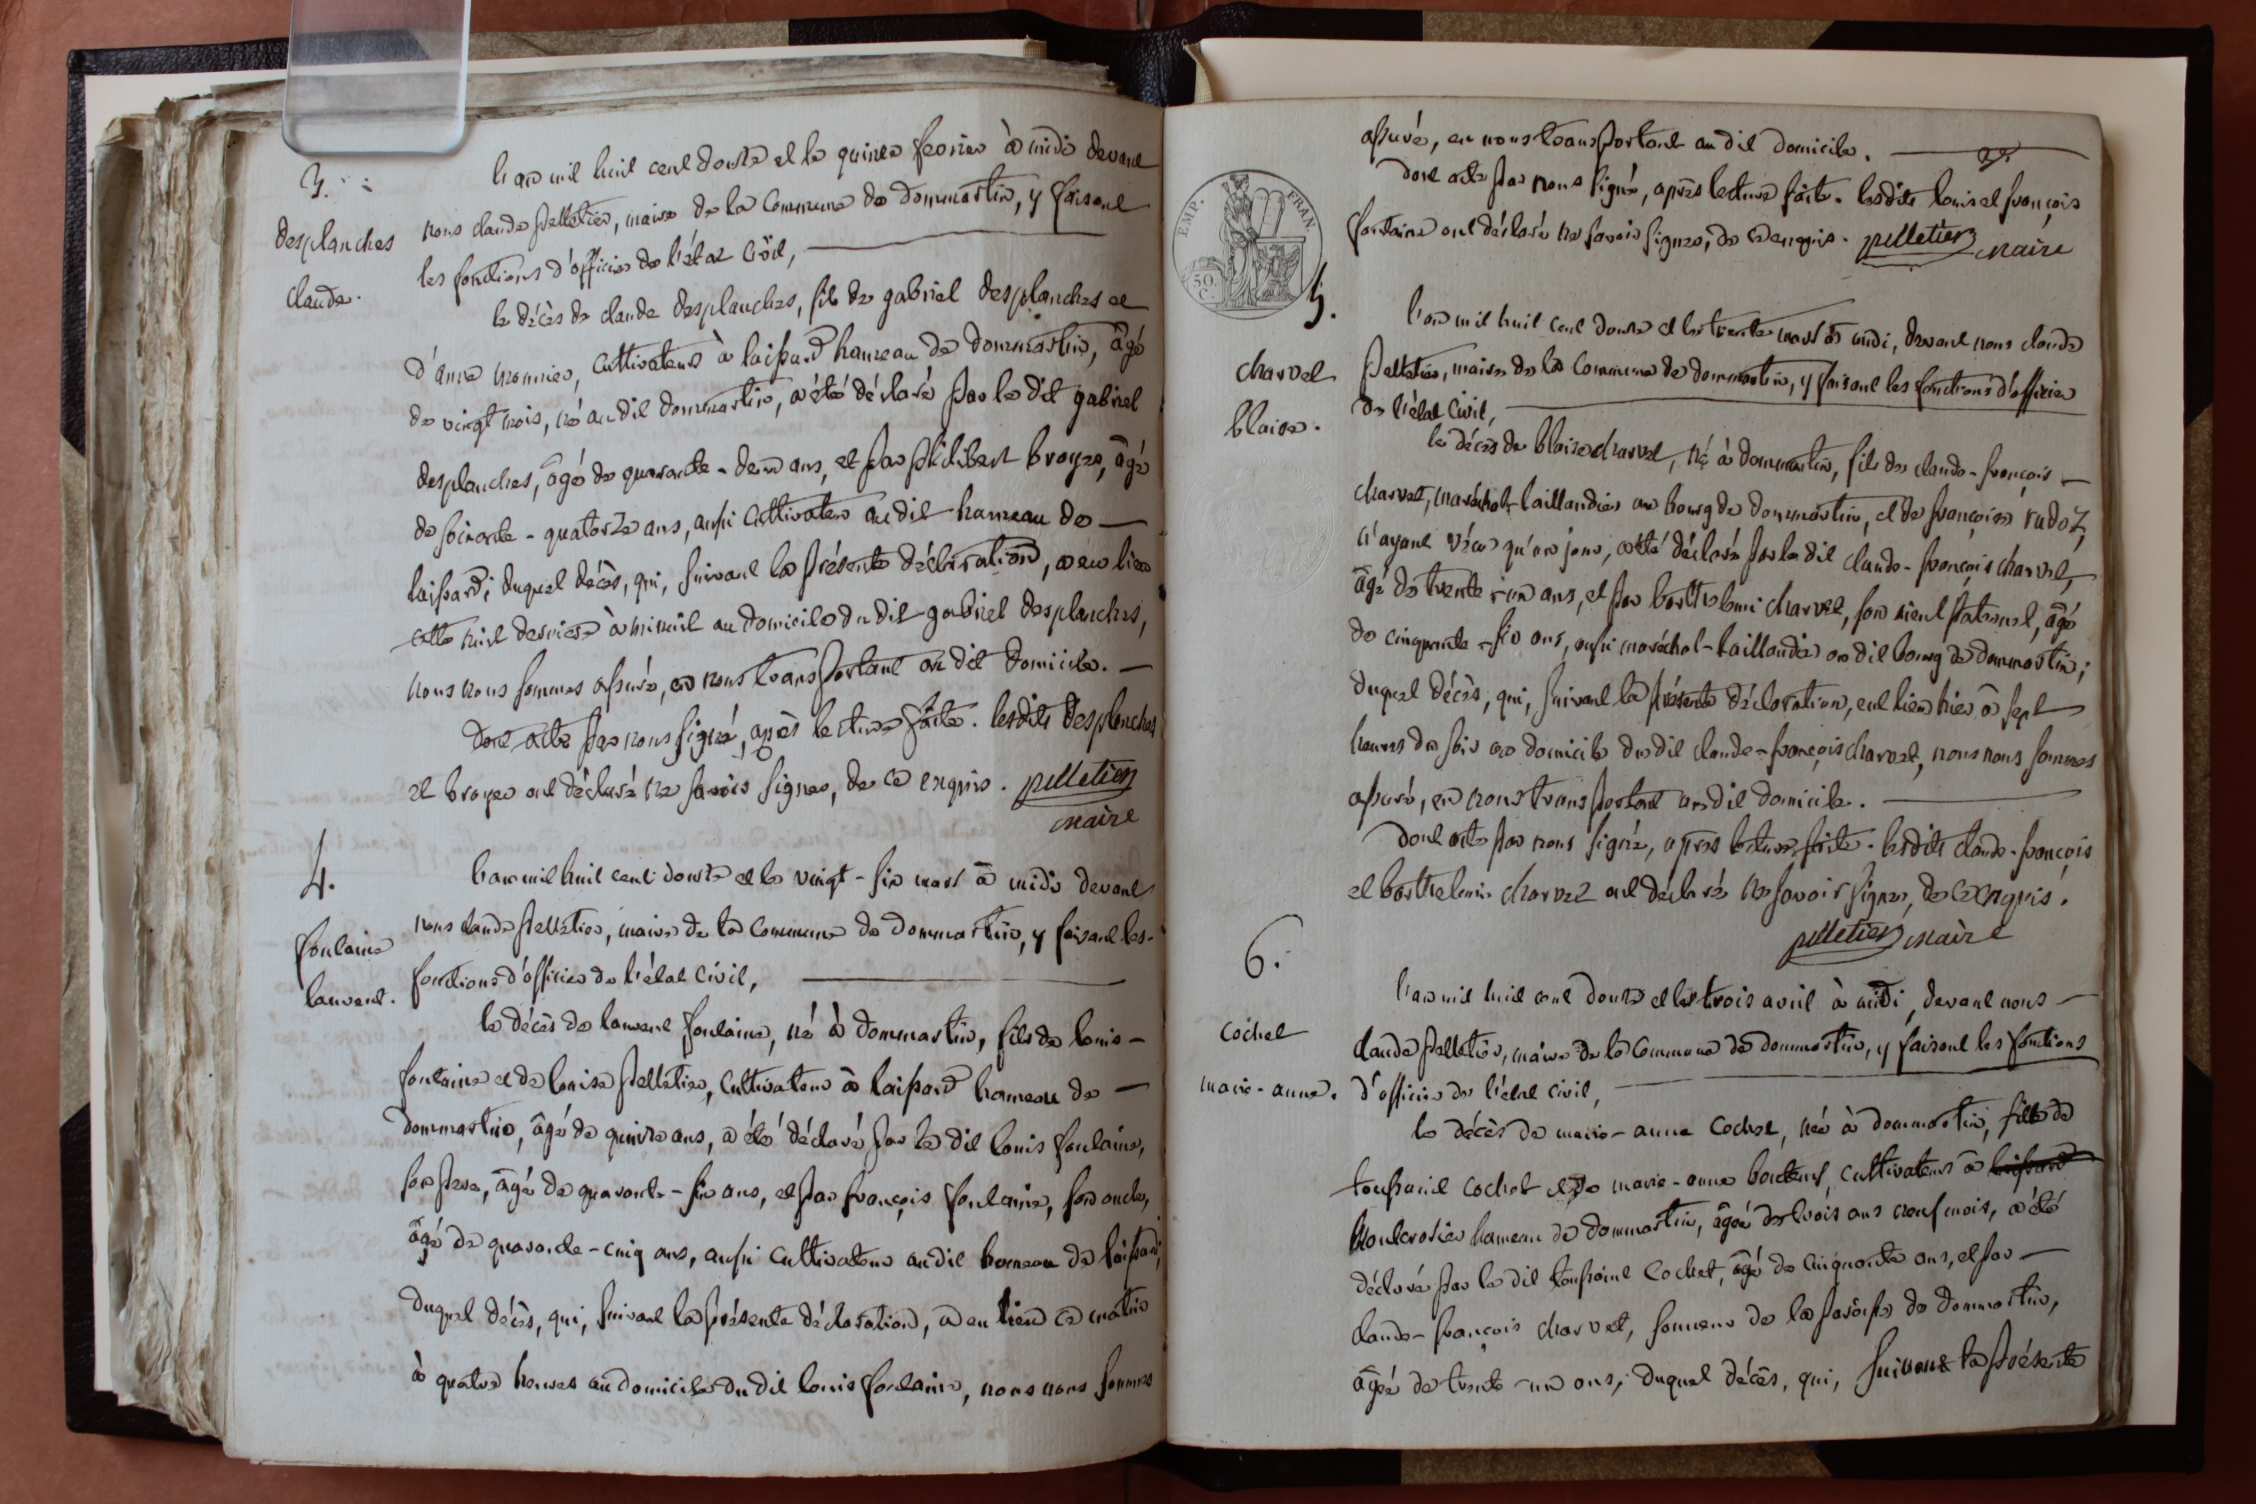 3.
desplanches
claude.
l'an mil huit cent douze et le quinze fevrier à midi devant
nous claude pelletier, maire de la commune de dommartin, y faisant
les fonctions d'officier de l'état civil,
le décès de claude desplanches, fils de gabriel desplanches et
d'anne monnier, cultivateurs à laissard hameau de dommartin, âgé
de vingt mois, né au dit dommartin, a été déclaré par le dit gabriel
desplanches, âgé de quarante-deux ans, et par philibert broyer, âgé
de soixante-quatorze ans, aussi cultivateur au dit hameau de
laissard; duquel décès, qui, suivant la présente déclaration, a eu lieu
cette nuit derniere à minuit au domicile du dit gabriel desplanches,
nous nous sommes assuré, en nous transportant au dit domicile.
dont acte par nous signé, après lecture faite. lesdits desplanches
et broyer ont déclaré ne savoir signer, de ce enquis. pelletier
maire
4.
fontaine
laurent.
l'an mil huit cent douze et le vingt-six mars à midi devant
nous claude pelletier, maire de la commune de dommartin, y faisant les
fonctions d'officier de l'état civil,
le décès de laurent fontaine, né à dommartin, fils de louis
fontaine et de louise pelletier, cultivateurs à laissard hameau de
dommartin, âgé de quinze ans, a été déclaré par le dit louis fontaine,
son pere, âgé de quarante-six ans, et par françois fontaine, son oncle,
âgé de quarante-cinq ans, aussi cultivateurs au dit hameau de laissard;
duquel décès, qui, suivant la présente déclaration, a eu lieu ce matin
à quatre heures au domicile du dit louis fontaine, nous nous sommes
assuré, en nous transportant au dit domicile.
dont acte par nous signé, après lecture faite. lesdits louis et françois
fontaine ont déclaré ne savoir signer, de ce enquis. pelletier maire
EMP. FRAN.
50 C.
5.
charvet
blaise.
l'an mil huit cent douze et le trente mars à midi, devant nous claude
pelletier, maire de la commune de dommartin, y faisant les fonctions d'officier
de l'état civil,
le décès de blaise charvet, né à dommartin, fils de claude-françois
charvet, maréchal-taillandier au bourg de dommartin, et de françoise rudoz,
n'ayant vécu qu'un jour, a été déclaré par le dit claude-françois charvet,
âgé de trente-un ans, et par barthelemi charvet, son aieul paternel, âgé
de cinquante-six ans, aussi maréchal-taillandier au dit bourg de dommartin;
duquel décès, qui, suivant la présente déclaration, eut lieu hier à sept
heures du soir au domicile du dit claude-françois charvet, nous nous sommes
assuré, en nous transportant au dit domicile.
dont acte par nous signé, après lecture faite. lesdits claude-françois
et barthelemi charvet ont déclaré ne savoir signer, de ce enquis.
pelletier maire
6.
cochet
marie-anne.
l'an mil huit cent douze et le trois avril à midi, devant nous
claude pelletier, maire de la commune de dommartin, y faisant les fonctions
d'officier de l'état civil,
le décès de marie-anne cochet, née à dommartin, fille de
toussaint cochet et de marie-anne cultivateurs à laissard
hameau de dommartin, âgée de trois ans neuf mois, a été
déclaré par le dit toussaint cochet, âgé de cinquante ans, et par
claude-françois charvet, sonneur de la paroisse de dommartin,
âgé de trente-un ans; duquel décès, qui, suivant la présente